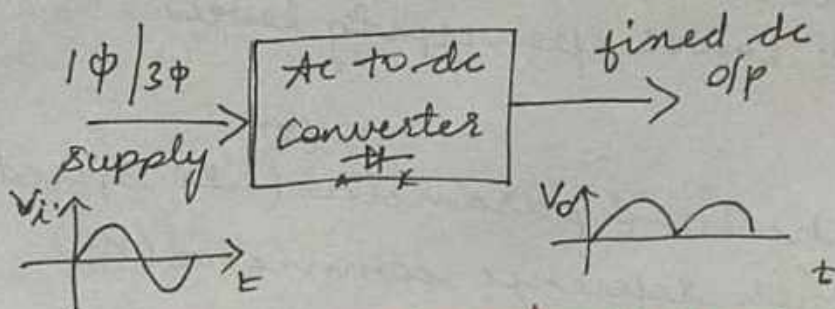 1φ/3φ
supply
Ac to dc
converter
fixed dc
o/p
Vi
t
Vo
t